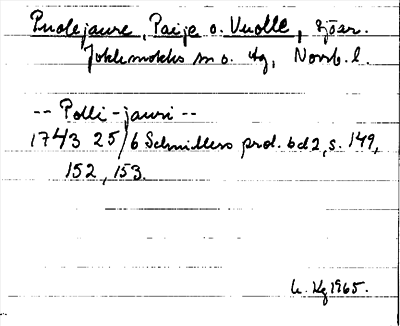 Puolejaure, Paije o. Vuolle, sjöar.
Jokkmokks sn o. tg, Norrb. l.
-- Polli-jauri --
1743 25/6 Schnitlers prot. bd 2, s. 149,
152, 153.
h. Hg 1965.